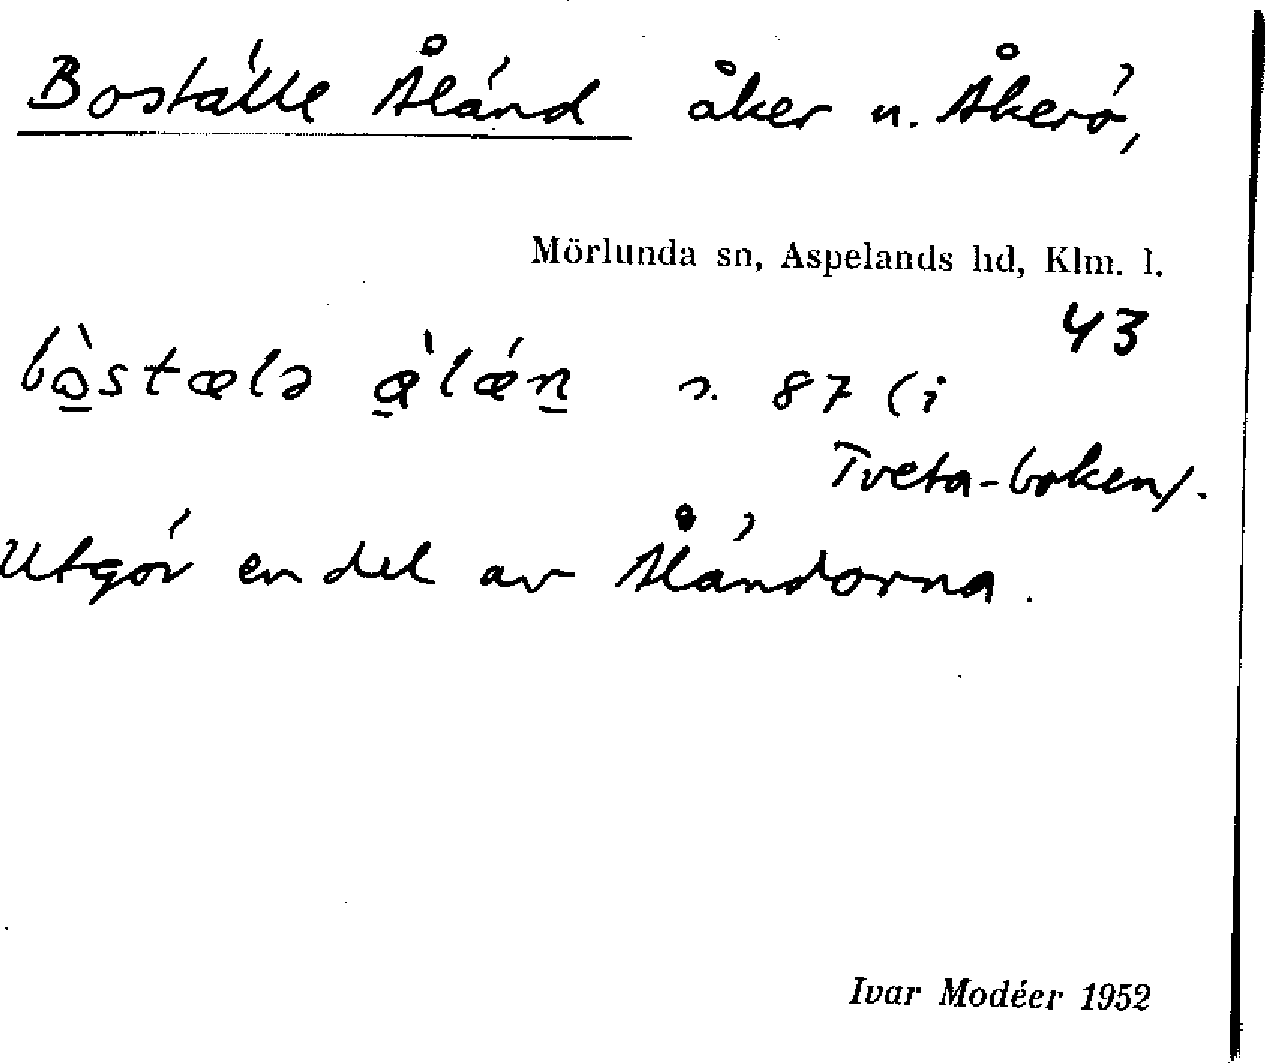 Boställe Åländ åker n. Åkerö,
Mörlunda sn, Aspelands hd, Klm. l.
43
bò̲stælə à̲lǽn̲ s. 87 (i
Tveta-boken).
Utgör en del av Åländorna.
Ivar Modéer 1952